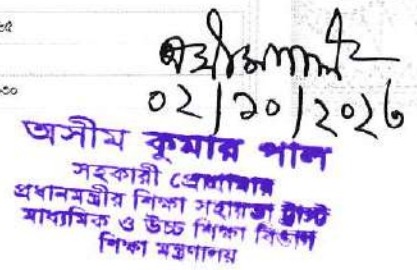 ০২|১০|২০২৩
অসীম কুমার পাল
সহকারী প্রোগ্রামার
প্রধানমন্ত্রীর শিক্ষা সহায়তা ট্রাস্ট
মাধ্যমিক ও উচ্চ শিক্ষা বিভাগ
শিক্ষা মন্ত্রণালয়